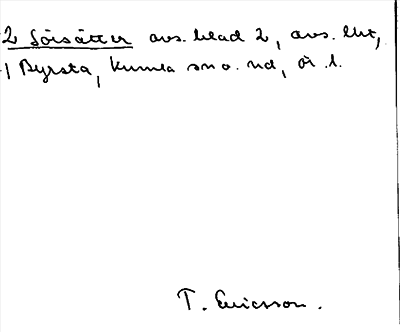 2 Sörsätter avs. blad 2, avs. lht,
i Byrsta, Kumla sn o. hd, ör. l.
T. Ericsson.